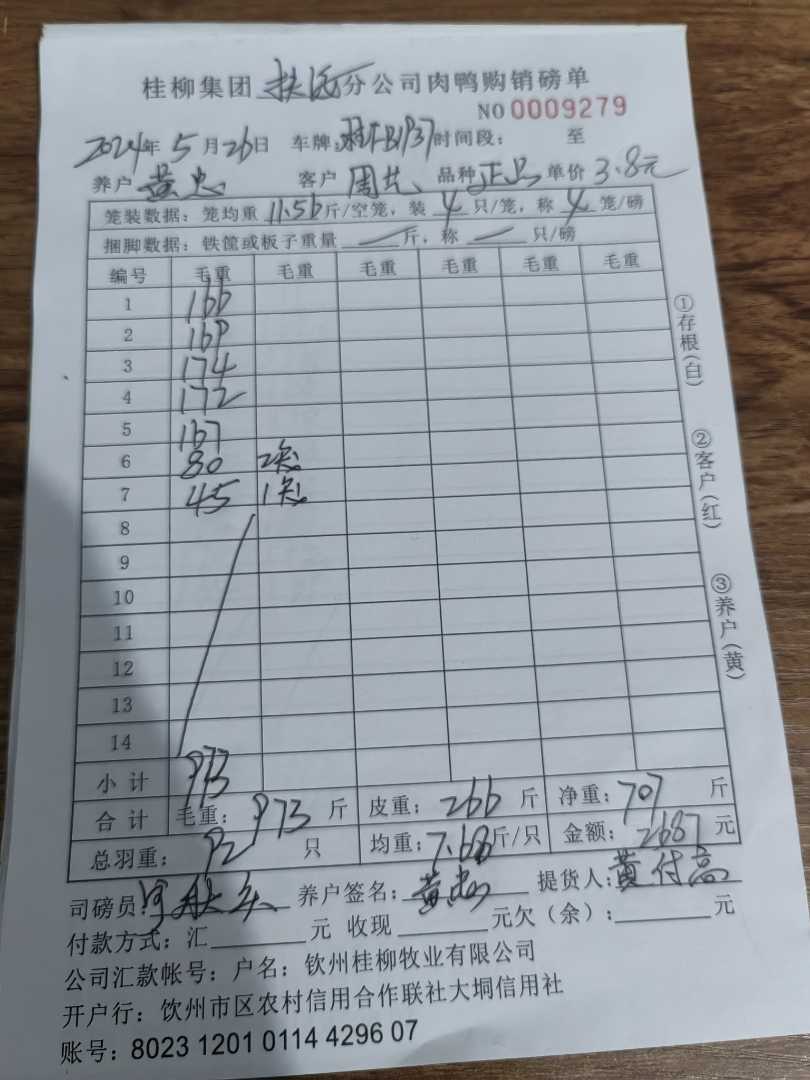 桂柳集团 扶远 分公司肉鸭购销磅单
NO 0009279
2024年 5月26日 车牌:桂FB1937 时间段: 至
养户 黄忠 客户 周共 品种 正品 单价 3.8元
笼装数据: 笼均重 11.56斤/空笼, 装 4 只/笼, 称 4 笼/磅
捆脚数据: 铁筐或板子重量 — 斤, 称 — 只/磅
编号 毛重 毛重 毛重 毛重 毛重 毛重
1 166
2 169
3 174
4 172
5 167
6 80 2笼
7 45 1笼
8
9
10
11
12
13
14
小计 973
合计 毛重: 973 斤 皮重: 266 斤 净重: 707 斤
总羽重: 92 只 均重: 7.68斤/只 金额: 2687 元
司磅员: 养户签名: 黄忠 提货人: 黄付高
付款方式: 汇 元 收现 元欠(余): 元
公司汇款帐号: 户名: 钦州桂柳牧业有限公司
开户行: 钦州市区农村信用合作联社大垌信用社
账号: 8023 1201 0114 4296 07
①存根(白)
②客户(红)
③养户(黄)